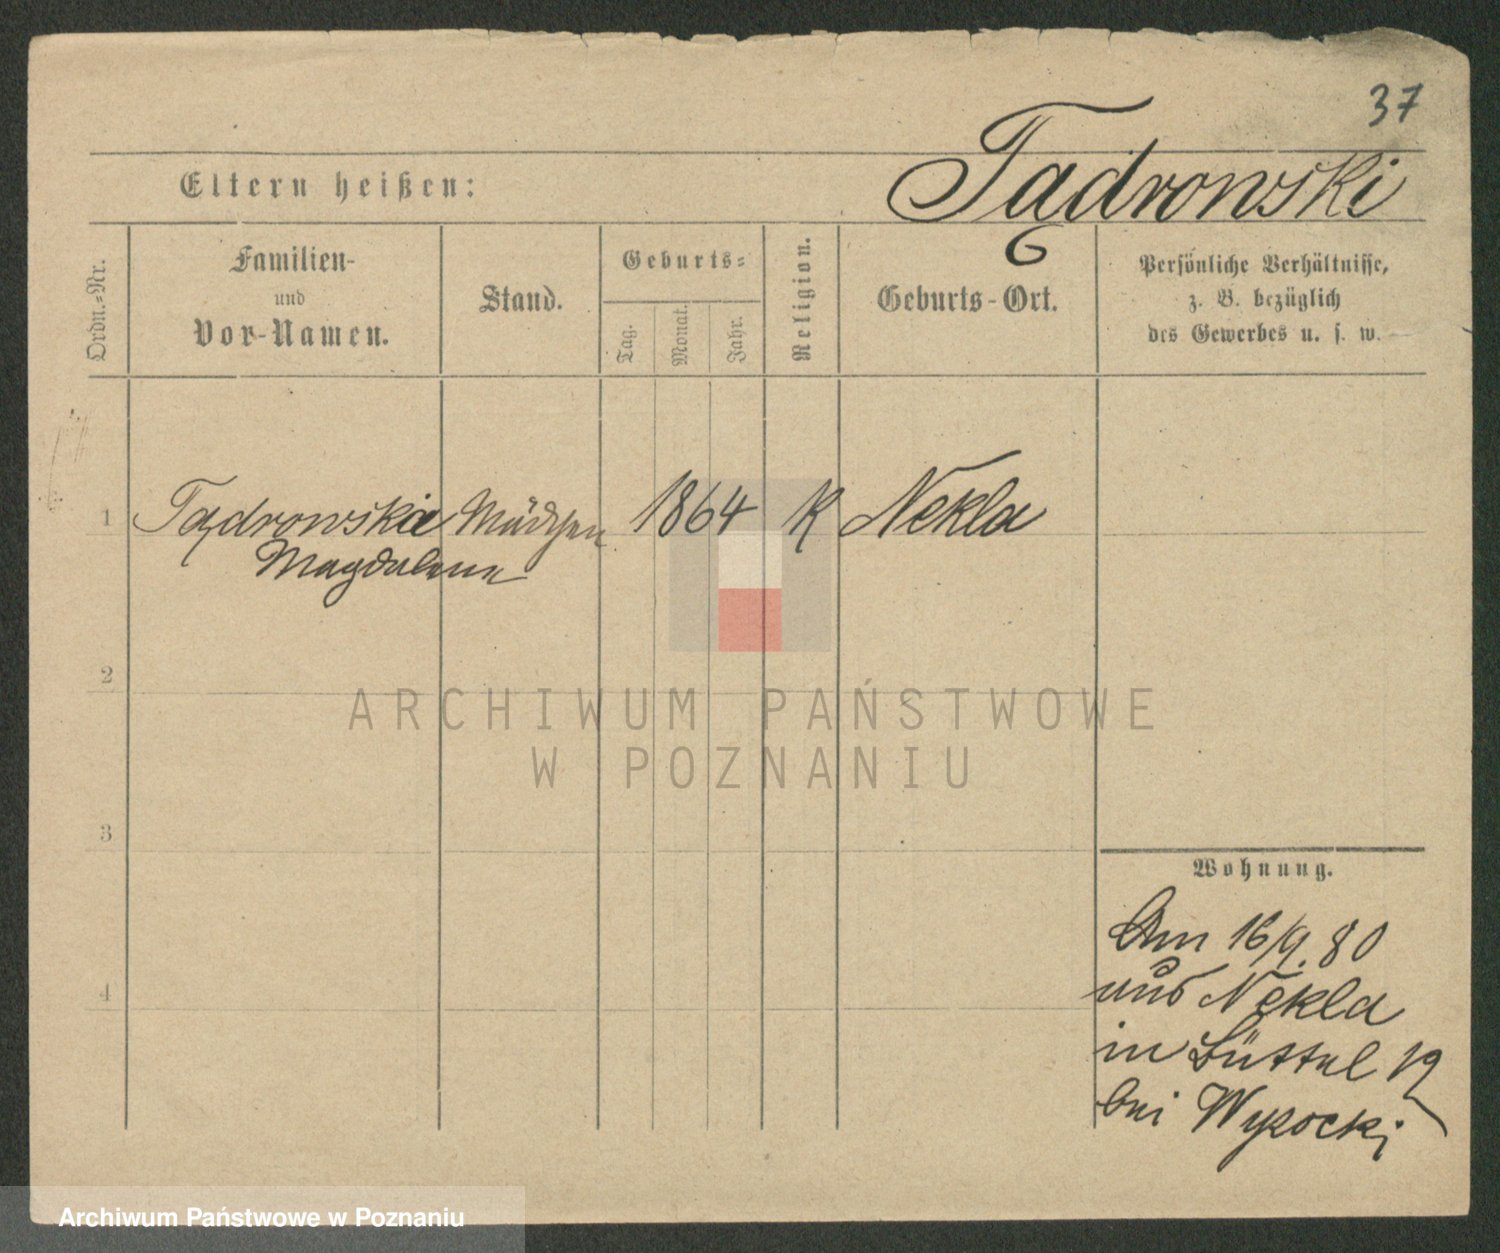 37
Eltern heißen:
Tądrowski
6
Ordn.-Nr.
Familien-
und
Vor-Namen.
Stand.
Geburts-
Tag.
Monat.
Jahr.
Religion.
Geburts-Ort.
Persönliche Verhältnisse,
z. B. bezüglich
des Gewerbes u. s. w.
1 Tądrowska Mädchen 1864 K Nekla
Magdalena
2
ARCHIWUM PAŃSTWOWE
W POZNANIU
3
Wohnung.
Am 16/9. 80
aus Nekla
4
in Büttel 19
bei Wysocki
Archiwum Państwowe w Poznaniu